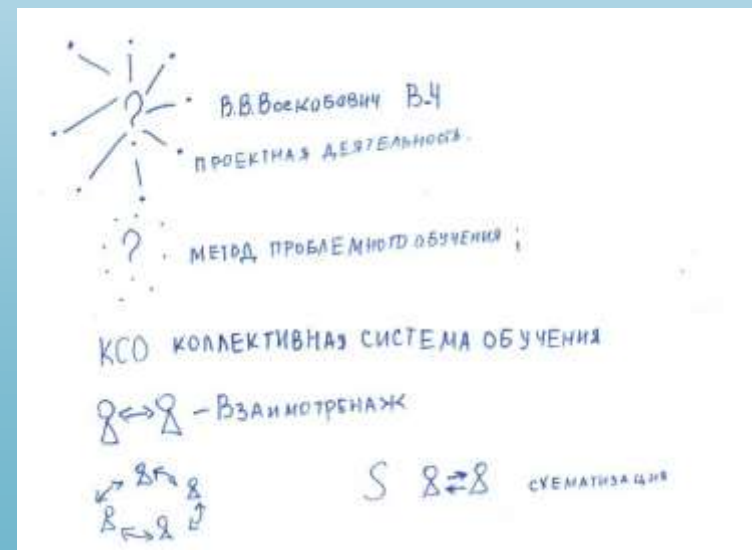 ?
В.В.Воскобович В-Ч
ПРОЕКТНАЯ ДЕЯТЕЛЬНОСТЬ.
? МЕТОД ПРОБЛЕМНОГО ОБУЧЕНИЯ ;
КСО КОЛЛЕКТИВНАЯ СИСТЕМА ОБУЧЕНИЯ
- ВЗАИМОТРЕНАЖ
S СХЕМАТИЗАЦИЯ